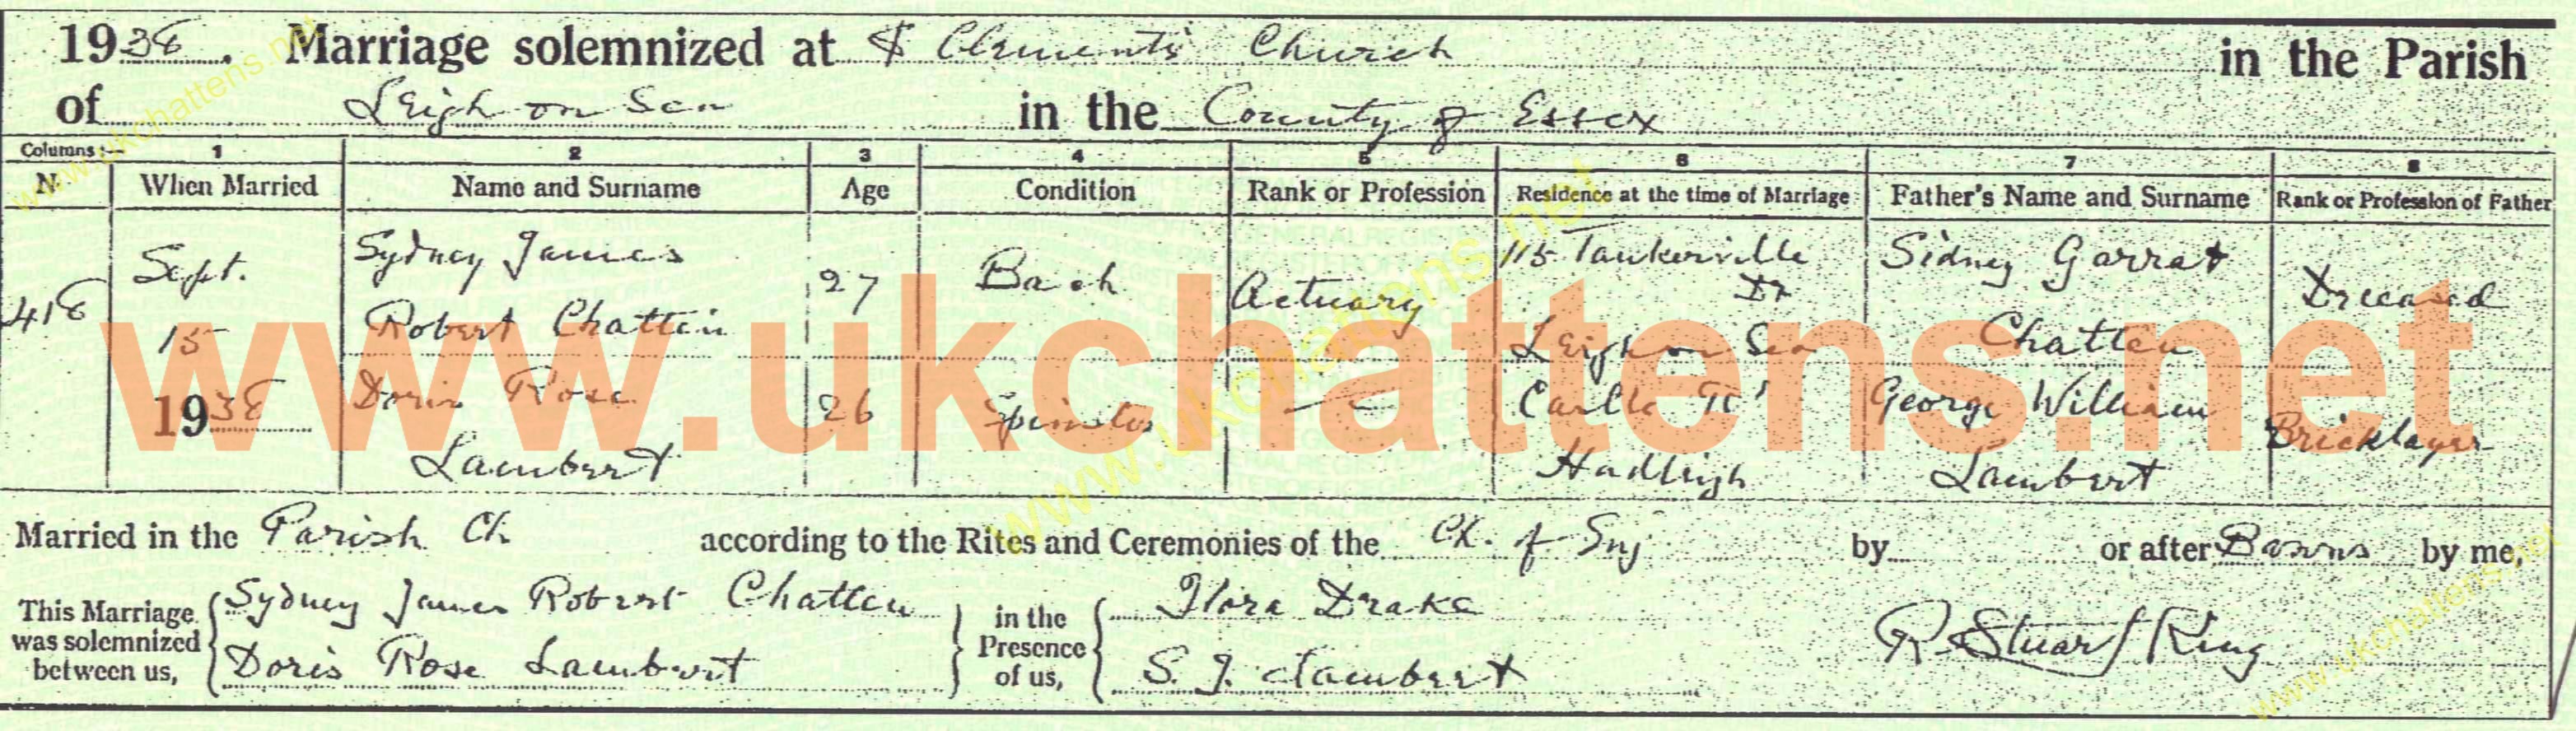 1938. Marriage solemnized at St Clements Church in the Parish
of Leigh on Sea in the County of Essex
Columns :— 1 2 3 4 5 6 7 8
No. When Married Name and Surname Age Condition Rank or Profession Residence at the time of Marriage Father's Name and Surname Rank or Profession of Father
418 Sept. 15 1938 Sydney James Robert Chatten 27 Bach Actuary 115 Tankerville Dr Leigh on Sea Sidney Garrat Chatten Deceased
Doris Rose Lambert 26 Spinster — Castle Hadleigh George William Lambert Bricklayer
Married in the Parish Ch according to the Rites and Ceremonies of the Ch. of Eng by or after Banns by me,
This Marriage was solemnized between us, Sydney James Robert Chatten Doris Rose Lambert in the Presence of us, Flora Drake S. J. Lambert R. Stuart King
www.ukchattens.net
www.ukchattens.net
www.ukchattens.net
www.ukchattens.net
www.ukchattens.net